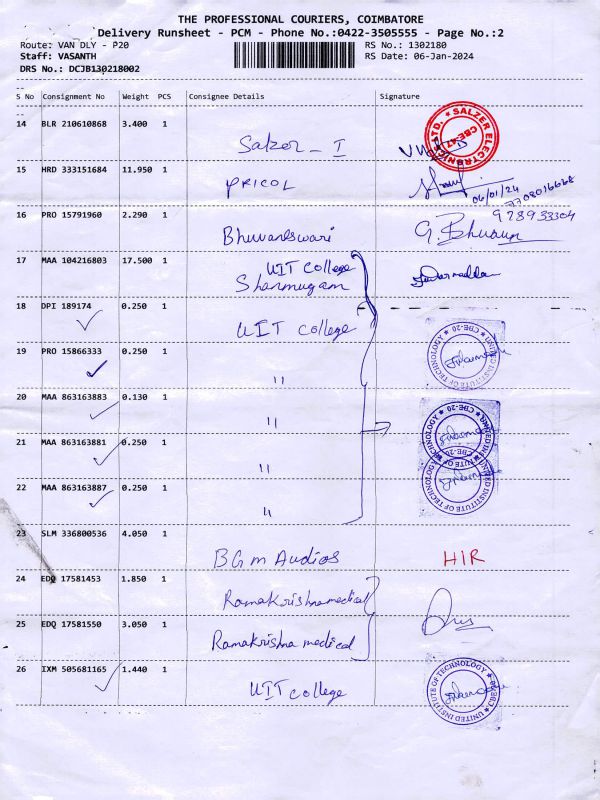 THE PROFESSIONAL COURIERS, COIMBATORE
Delivery Runsheet - PCM - Phone No.:0422-3505555 - Page No.:2
Route: VAN DLY - P20 RS No.: 1302180
Staff: VASANTH RS Date: 06-Jan-2024
DRS No.: DCJB130218002
S No Consignment No Weight PCS Consignee Details Signature
14 BLR 210610868 3.400 1 Salzer - I
SALZER ELECTRONICS LTD. CBE-47
15 HRD 333151684 11.950 1 PRICOL
06/01/24
7708016668
16 PRO 15791960 2.290 1 Bhuvaneswari G. Bhuvan
978933304
17 MAA 104216803 17.500 1 UIT College
Shanmugam
18 DPI 189174 0.250 1 UIT College
19 PRO 15866333 0.250 1 "
UNITED INSTITUTE OF TECHNOLOGY CBE-20
20 MAA 863163883 0.130 1 "
UNITED INSTITUTE OF TECHNOLOGY CBE-20
21 MAA 863163881 0.250 1 "
UNITED INSTITUTE OF TECHNOLOGY CBE-20
22 MAA 863163887 0.250 1 "
23 SLM 336800536 4.050 1 BGM Audios HIR
24 EDQ 17581453 1.850 1 Ramakrishna medical
25 EDQ 17581550 3.050 1 Ramakrishna medical
26 IXM 505681165 1.440 1 UIT College
UNITED INSTITUTE OF TECHNOLOGY